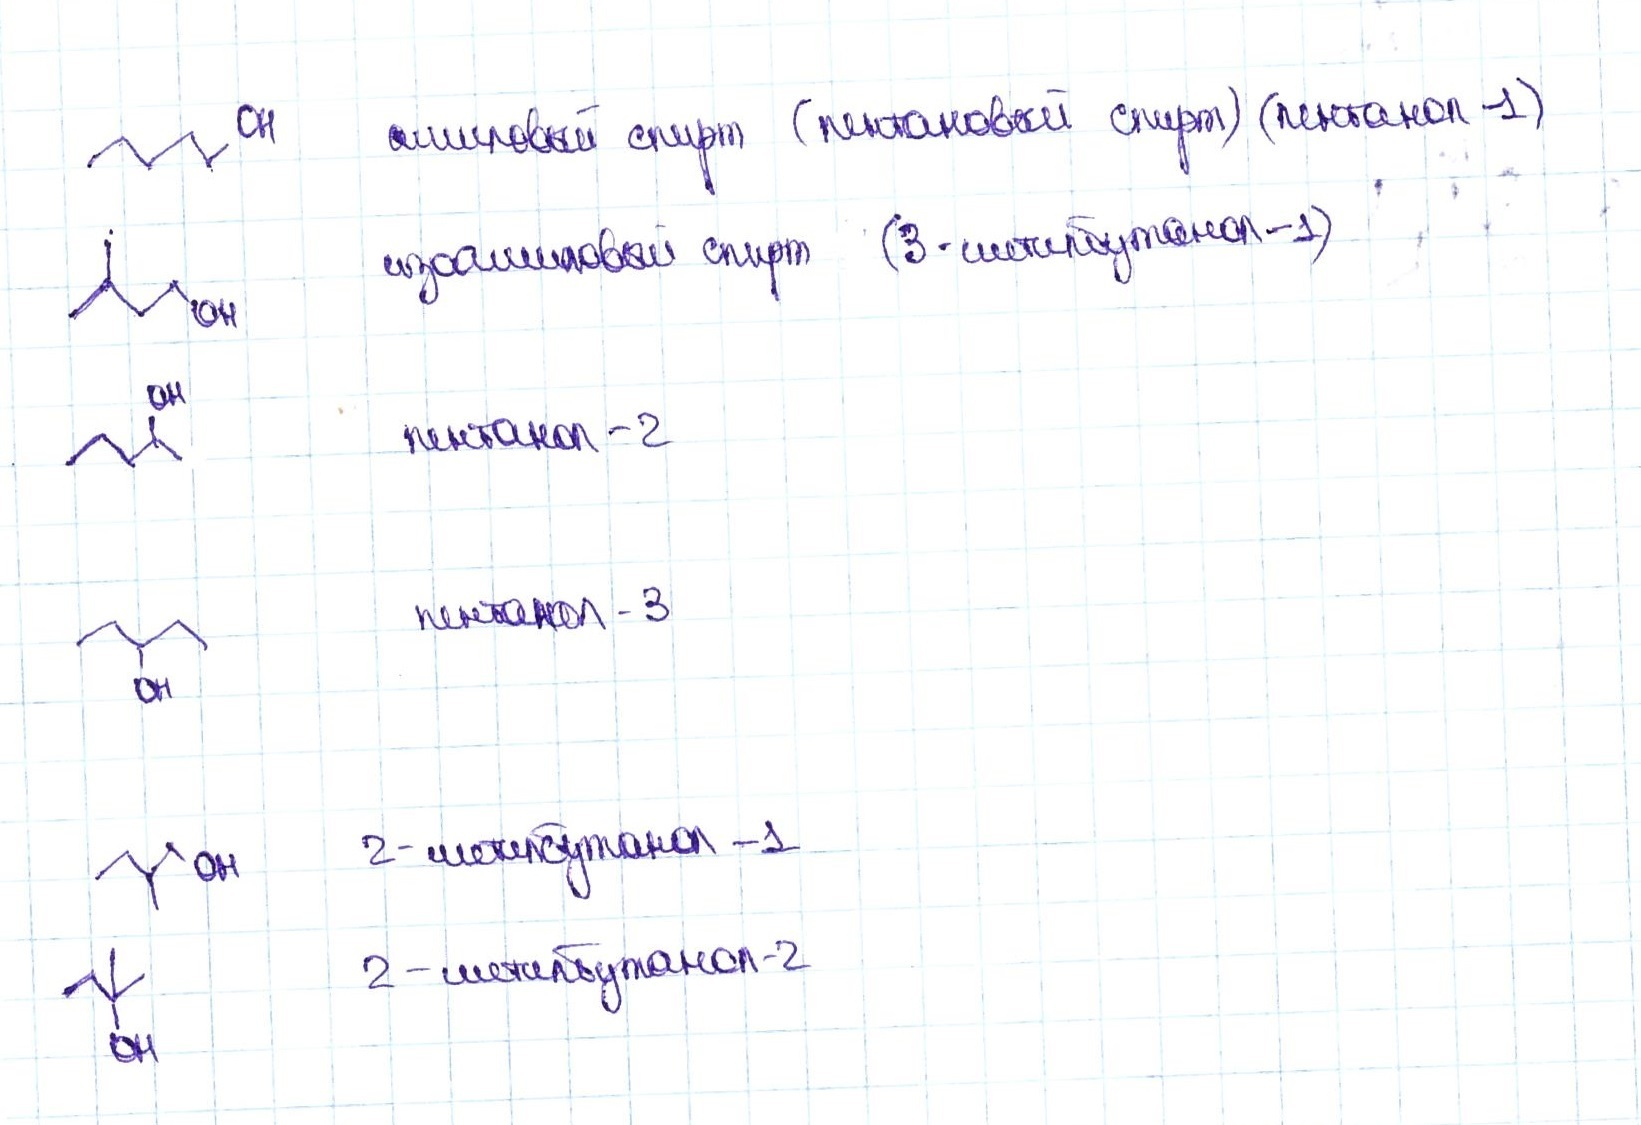 OH амиловый спирт (пентановый спирт) (пентанол-1)
OH изоамиловый спирт (3-метилбутанол-1)
OH
пентанол-2
пентанол-3
OH
OH 2-метилбутанол-1
2-метилбутанол-2
OH